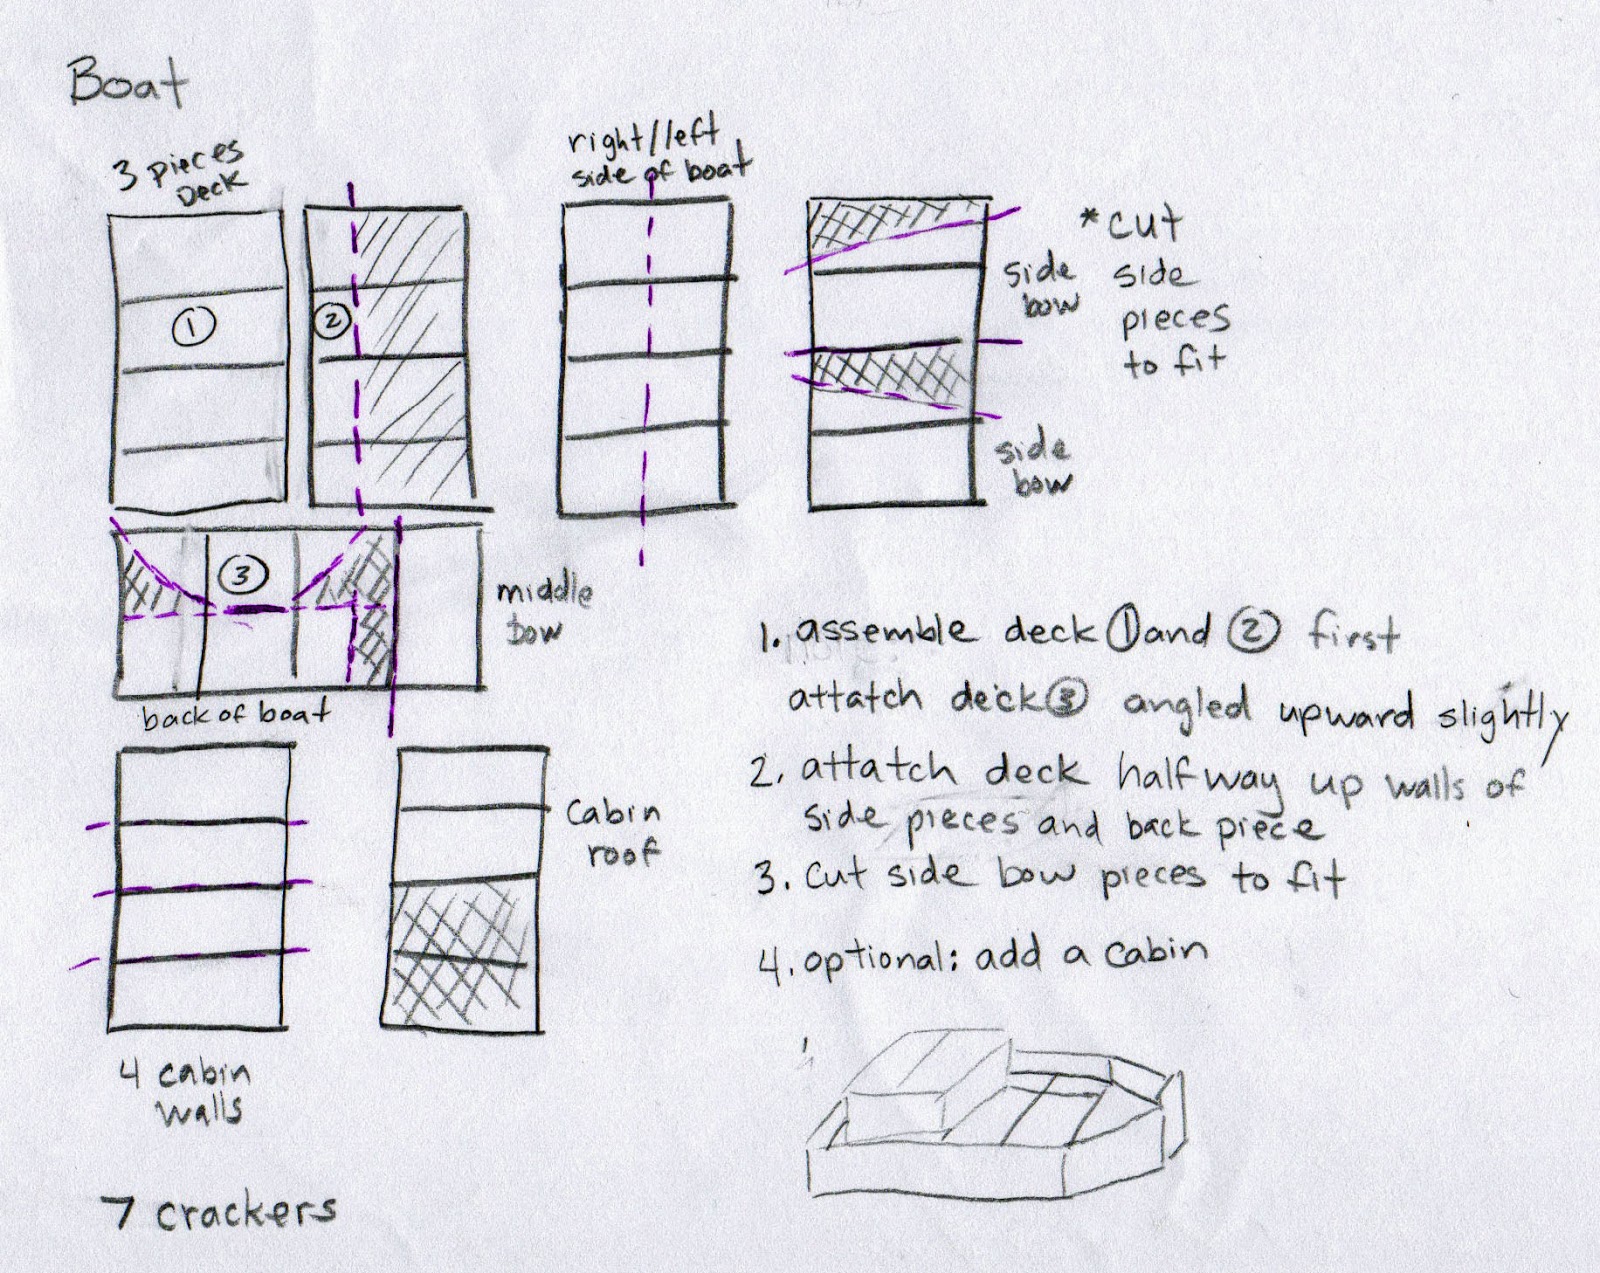 Boat
3 pieces
Deck
right//left
side of boat
1
2
side
bow
*cut
side
pieces
to fit
side
bow
3
middle
bow
back of boat
1. assemble deck 1 and 2 first
attatch deck 3 angled upward slightly
2. attatch deck halfway up walls of
side pieces and back piece
3. cut side bow pieces to fit
4. optional: add a cabin
cabin
roof
4 cabin
walls
7 crackers